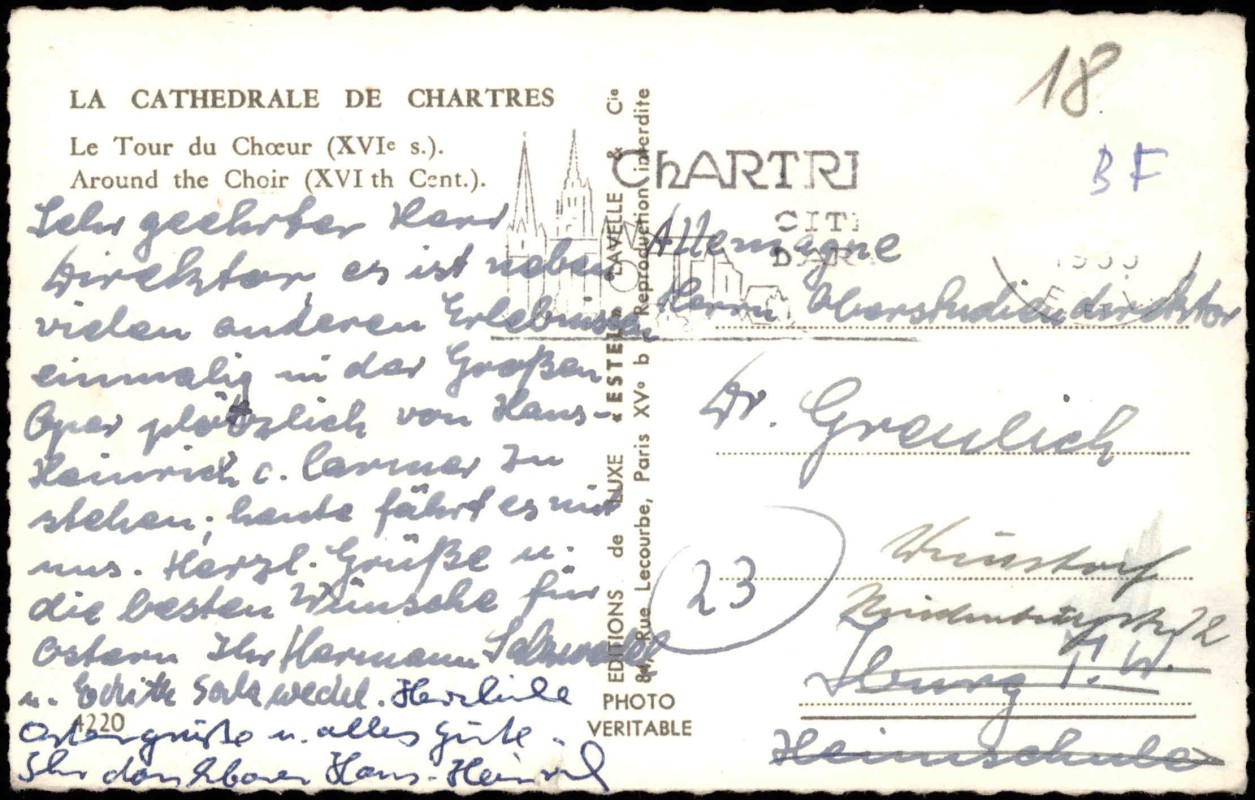 LA CATHEDRALE DE CHARTRES
Le Tour du Chœur (XVIe s.).
Around the Choir (XVI th Cent.).
Sehr geehrter Herr
Direktor es ist neben
vielen anderen Erlebnissen
einmalig in der Großen
Oper plötzlich von Hans-
Heinrich c. Carmer zu
stehen; heute fährt es mit
uns. Herzl. Grüße u.
die besten Wünsche für
Ostern Ihr Hermann Salzwedel
u. Edith Salzwedel. Herzliche
Ostergrüße u. alles Gute.
Ihr dankbarer Hans-Heinrich
4220
EDITIONS de LUXE « ESTEL » LAVELLE & Cie
Rue Lecourbe, Paris XVe b Reproduction interdite
PHOTO
VERITABLE
ChARTR
CITE
D'ART
18.
BF
Allemagne
Herrn Oberstudiendirektor
Dr. Greulich
23
Wunstorf
Hindenburgstr. 72
Iburg T. W.
Heimschule